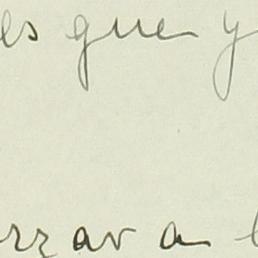 es que y
rzar a l